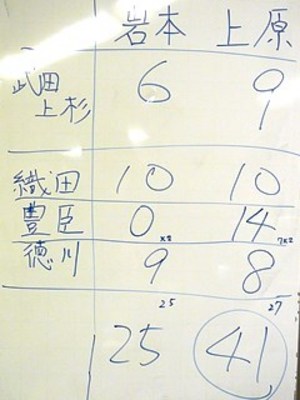 岩本 上原
武田
上杉 6 9
織田 10 10
豊臣 0 x2 14 7x2
徳川 9 8
25 27
25 41